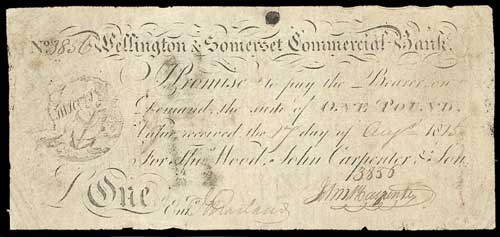 No. 3856 Wellington & Somerset Commercial Bank.
I Promise to pay the Bearer, on
Demand, the sum of ONE POUND,
Value received the 17 day of Augst 1815
For Thos. Wood, John Carpenter & Son,
13856
£ One
John Carpenter
Entd.